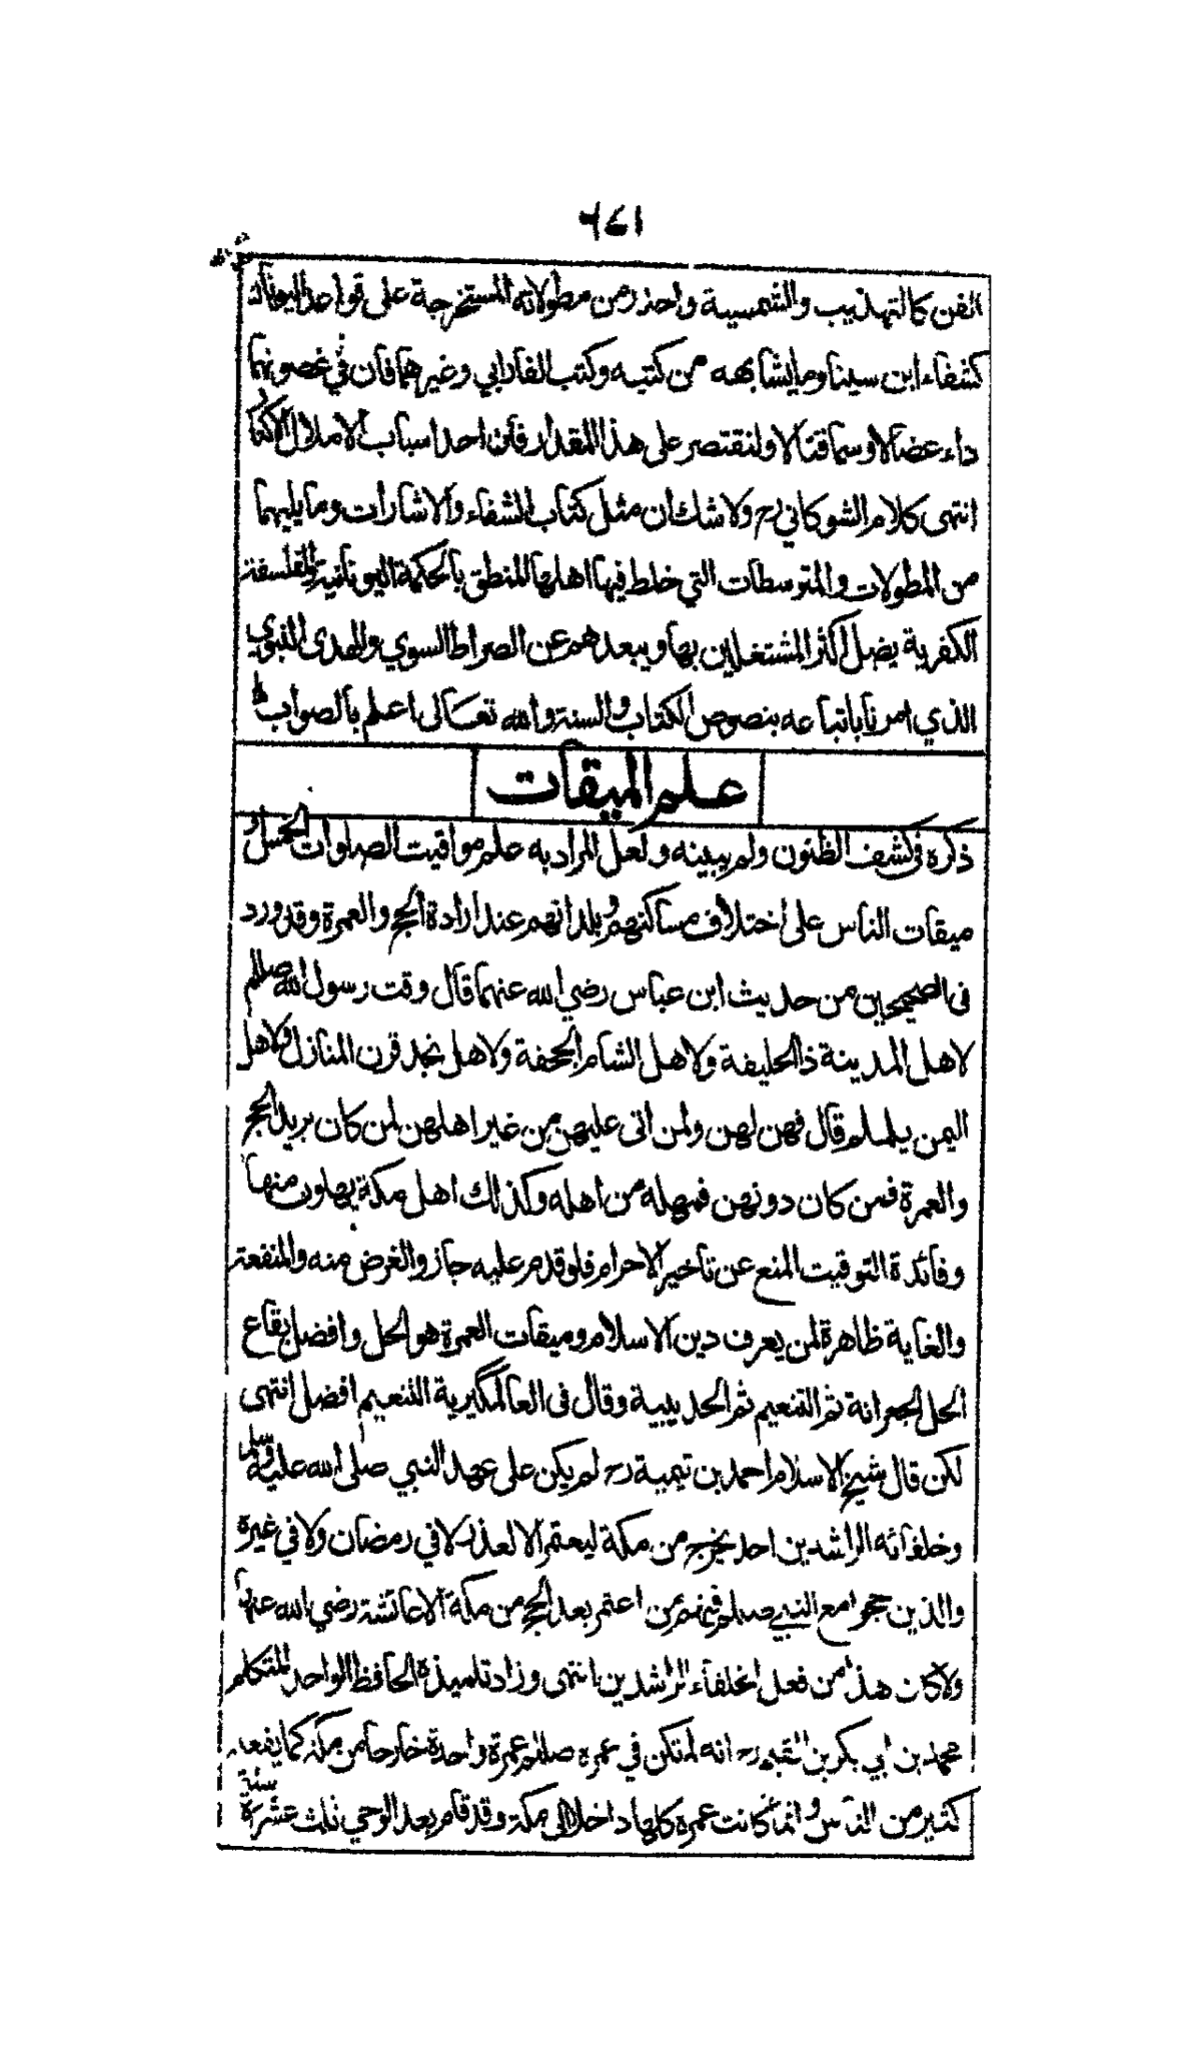 ٦٤١
الفن كالتهذيب والشمسية واحذر من مطولاته المستخرجة على قواعد اليونان
كشفاء ابن سينا وما يشابهه من كتبه وكتب الفارابي وغيرهما فان في غصونها
داء عضالا وسما قتالا ولنقتصر على هذا المقدار فان احد اسباب الاملال الاكثار
انتهى كلام الشوكاني رح ولا شك ان مثل كتاب الشفاء والاشارات وما يليهما
من المطولات والمتوسطات التي خلط فيها اهلها المنطق بالحكمة اليونانية والفلسفة
الكفرية يضل اكثر المشتغلين بها ويبعدهم عن الصراط السوي والهدى النبوي
الذي امرنا باتباعه بنصوص الكتاب والسنة والله تعالى اعلم بالصواب
علم الميقات
ذكره في كشف الظنون ولم يبينه ولعل المراد به علم مواقيت الصلوات الخمس او
ميقات الناس على اختلاف مساكنهم وبلدانهم عند ارادة الحج والعمرة وقد ورد
في الصحيحين من حديث ابن عباس رضي الله عنهما قال وقت رسول الله صللم
لاهل المدينة ذا الحليفة ولاهل الشام الجحفة ولاهل نجد قرن المنازل ولاهل
اليمن يلملم قال فهن لهن ولمن اتى عليهن من غير اهلهن لمن كان يريد الحج
والعمرة فمن كان دونهن فمهله من اهله وكذلك اهل مكة يهلون منها
وفائدة التوقيت المنع عن تاخير الاحرام فلو قدم عليه جاز والغرض منه والمنفعة
والغاية ظاهرة لمن يعرف دين الاسلام وميقات العمرة هو الحل وافضل بقاع
الحل الجعرانة ثم التنعيم ثم الحديبية وقال في العالمگيرية التنعيم افضل انتهى
لكن قال شيخ الاسلام احمد بن تيمية رح لم يكن على عهد النبي صلى الله عليه وسلم
وخلفائه الراشدين احد يخرج من مكة ليعتمر الا لعذر لا في رمضان ولا في غيره
والذين حجوا مع النبي صللم فيهم من اعتمر بعد الحج من مكة الا عائشة رضي الله عنها
ولا كان هذا من فعل الخلفاء الراشدين انتهى وزاد تلميذه الحافظ الواحد المتكلم
محمد بن ابي بكر بن القيم رح انه لم تكن في عمره صللم عمرة واحدة خارجا من مكة كما يفعله
كثير من الناس وانما كانت عمره كلها داخلا الى مكة وقد قام بعد الوحي ثلث عشرة سنة